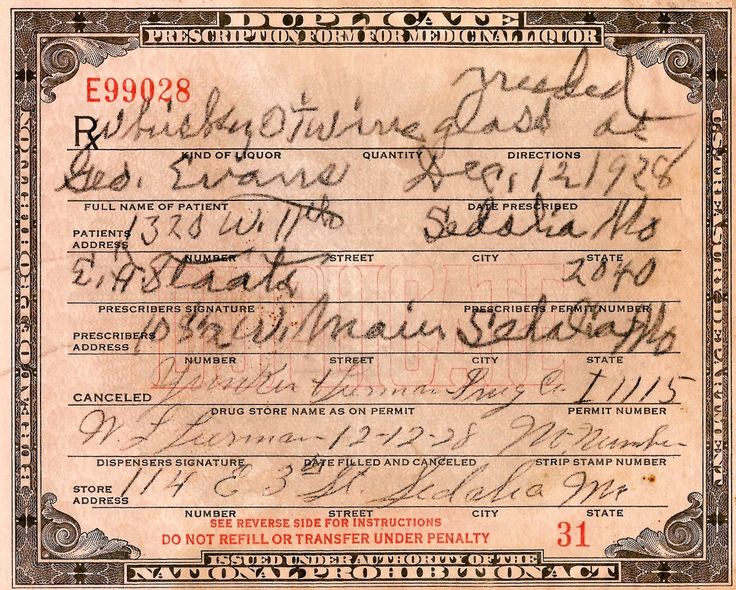 DUPLICATE
PRESCRIPTION FORM FOR MEDICINAL LIQUOR
E99028
needed
Rx Whiskey Oi Wine glass at
KIND OF LIQUOR QUANTITY DIRECTIONS
Geo. Evans Dec, 12 1928
FULL NAME OF PATIENT DATE PRESCRIBED
PATIENTS ADDRESS 1320 W. 11th Sedalia Mo
NUMBER STREET CITY STATE
E. A Staats 2040
PRESCRIBERS SIGNATURE PRESCRIBERS PERMIT NUMBER
PRESCRIBERS ADDRESS W. Main Sedalia Mo
NUMBER STREET CITY STATE
CANCELED Drug Co. I 1115
DRUG STORE NAME AS ON PERMIT PERMIT NUMBER
W. F. 12-12-28 No. Number
DISPENSERS SIGNATURE DATE FILLED AND CANCELED STRIP STAMP NUMBER
STORE ADDRESS 114 E 3rd St. Sedalia Mo
NUMBER STREET CITY STATE
SEE REVERSE SIDE FOR INSTRUCTIONS
DO NOT REFILL OR TRANSFER UNDER PENALTY 31
ISSUED UNDER AUTHORITY OF THE
NATIONAL PROHIBITION ACT